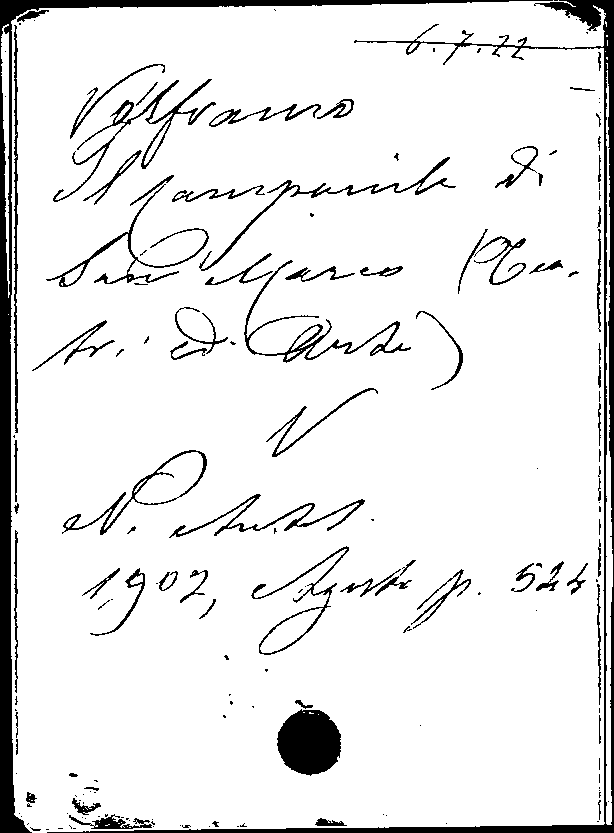 6.7.22
Valfranco
Il campanile di
San Marco (Tea-
tri ed Arte)
V
N. Antol.
1902, Agosto p. 524